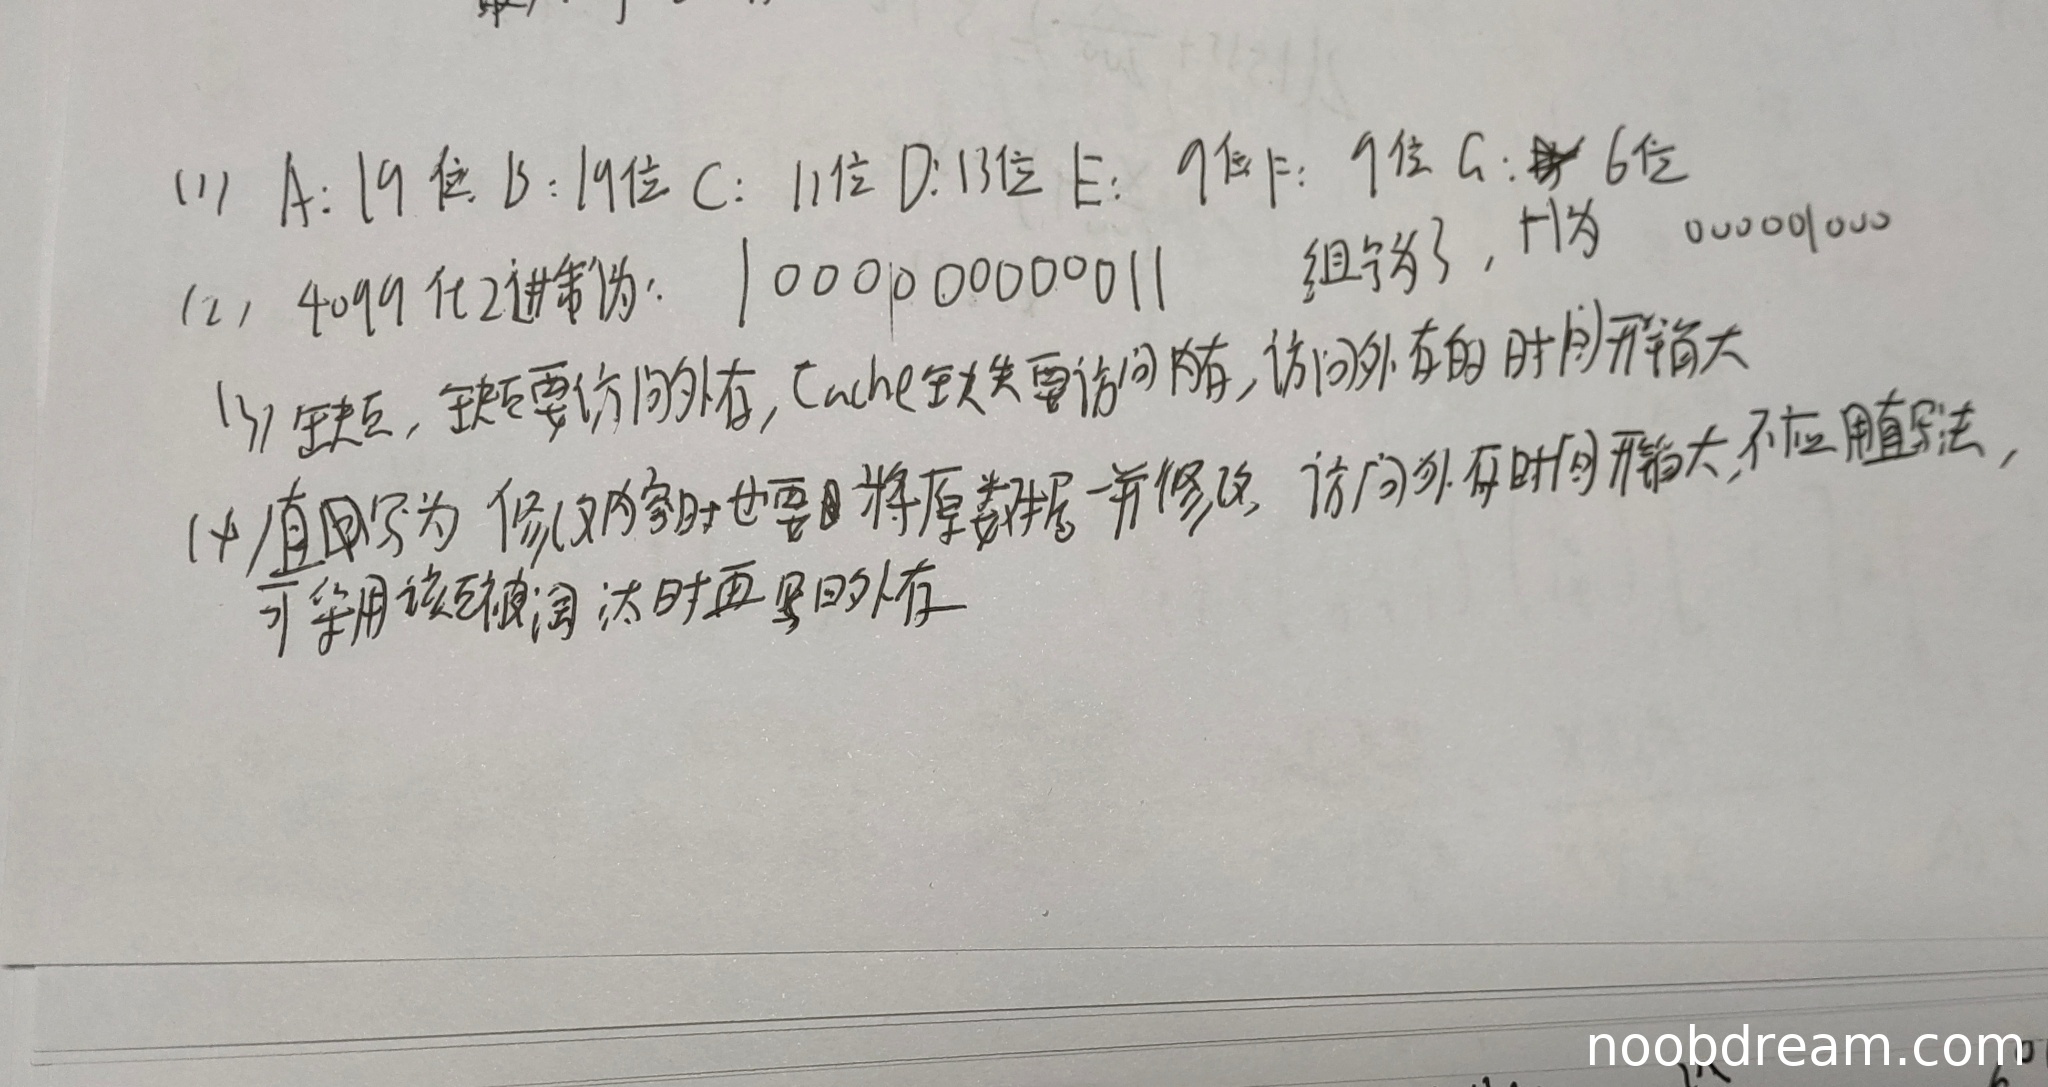 (1) A: 19位 B: 19位 C: 11位 D: 13位 E: 9位 F: 9位 G: 6位
(2) 4099化2进制为: 1000000000011 组号为3, H为 000001000
(3) 缺页, 缺页要访问外存, Cache缺失要访问内存, 访问外存的时间开销大
(4) 直写为 修改内容时也要将原数据一并修改 访问外存时间开销大, 不应用直写法,
可采用该页被淘汰时再写回外存
noobdream.com